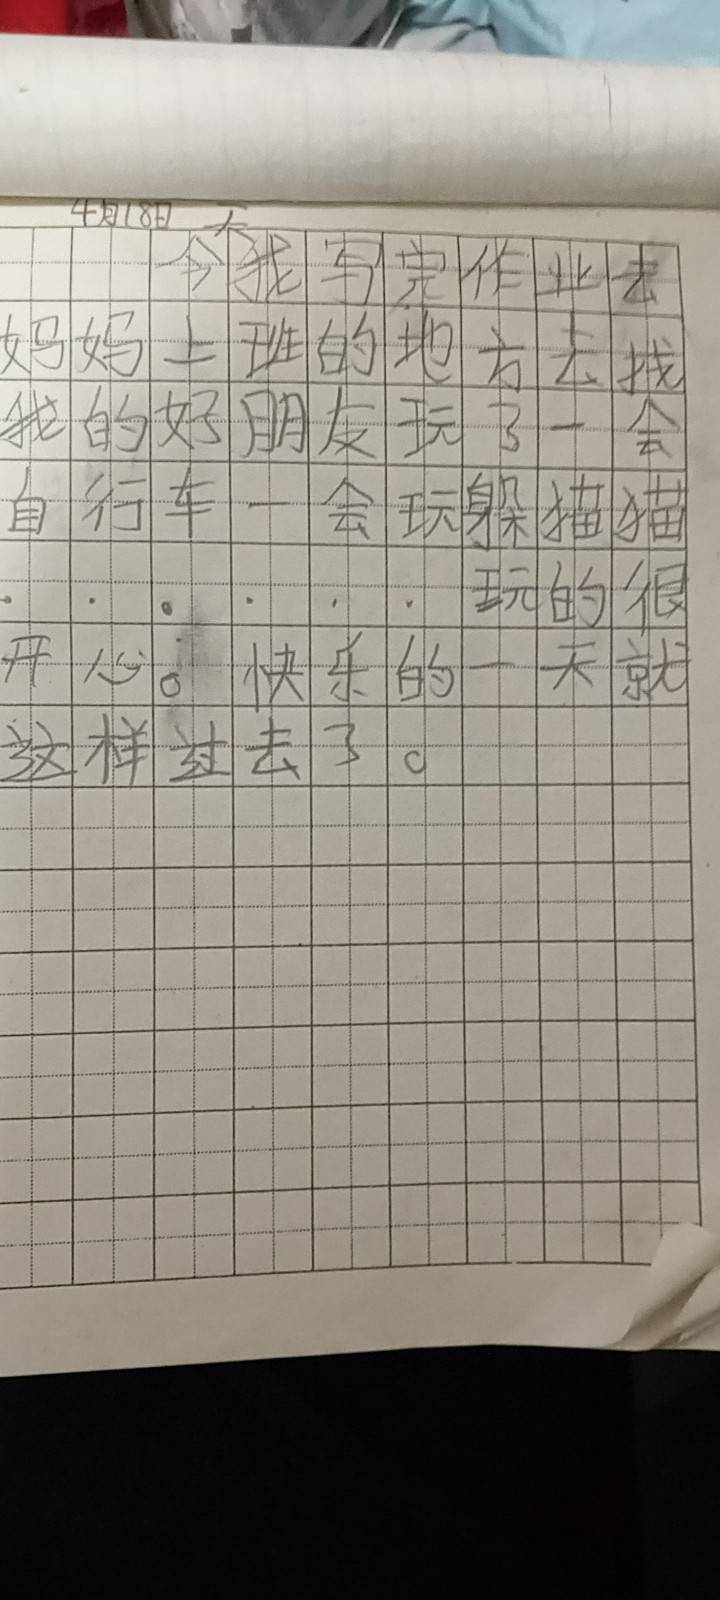 4月18日
今天我写完作业去
妈妈上班的地方去找
我的好朋友玩了一会
自行车一会玩躲猫猫
······玩的很
开心。快乐的一天就
这样过去了。